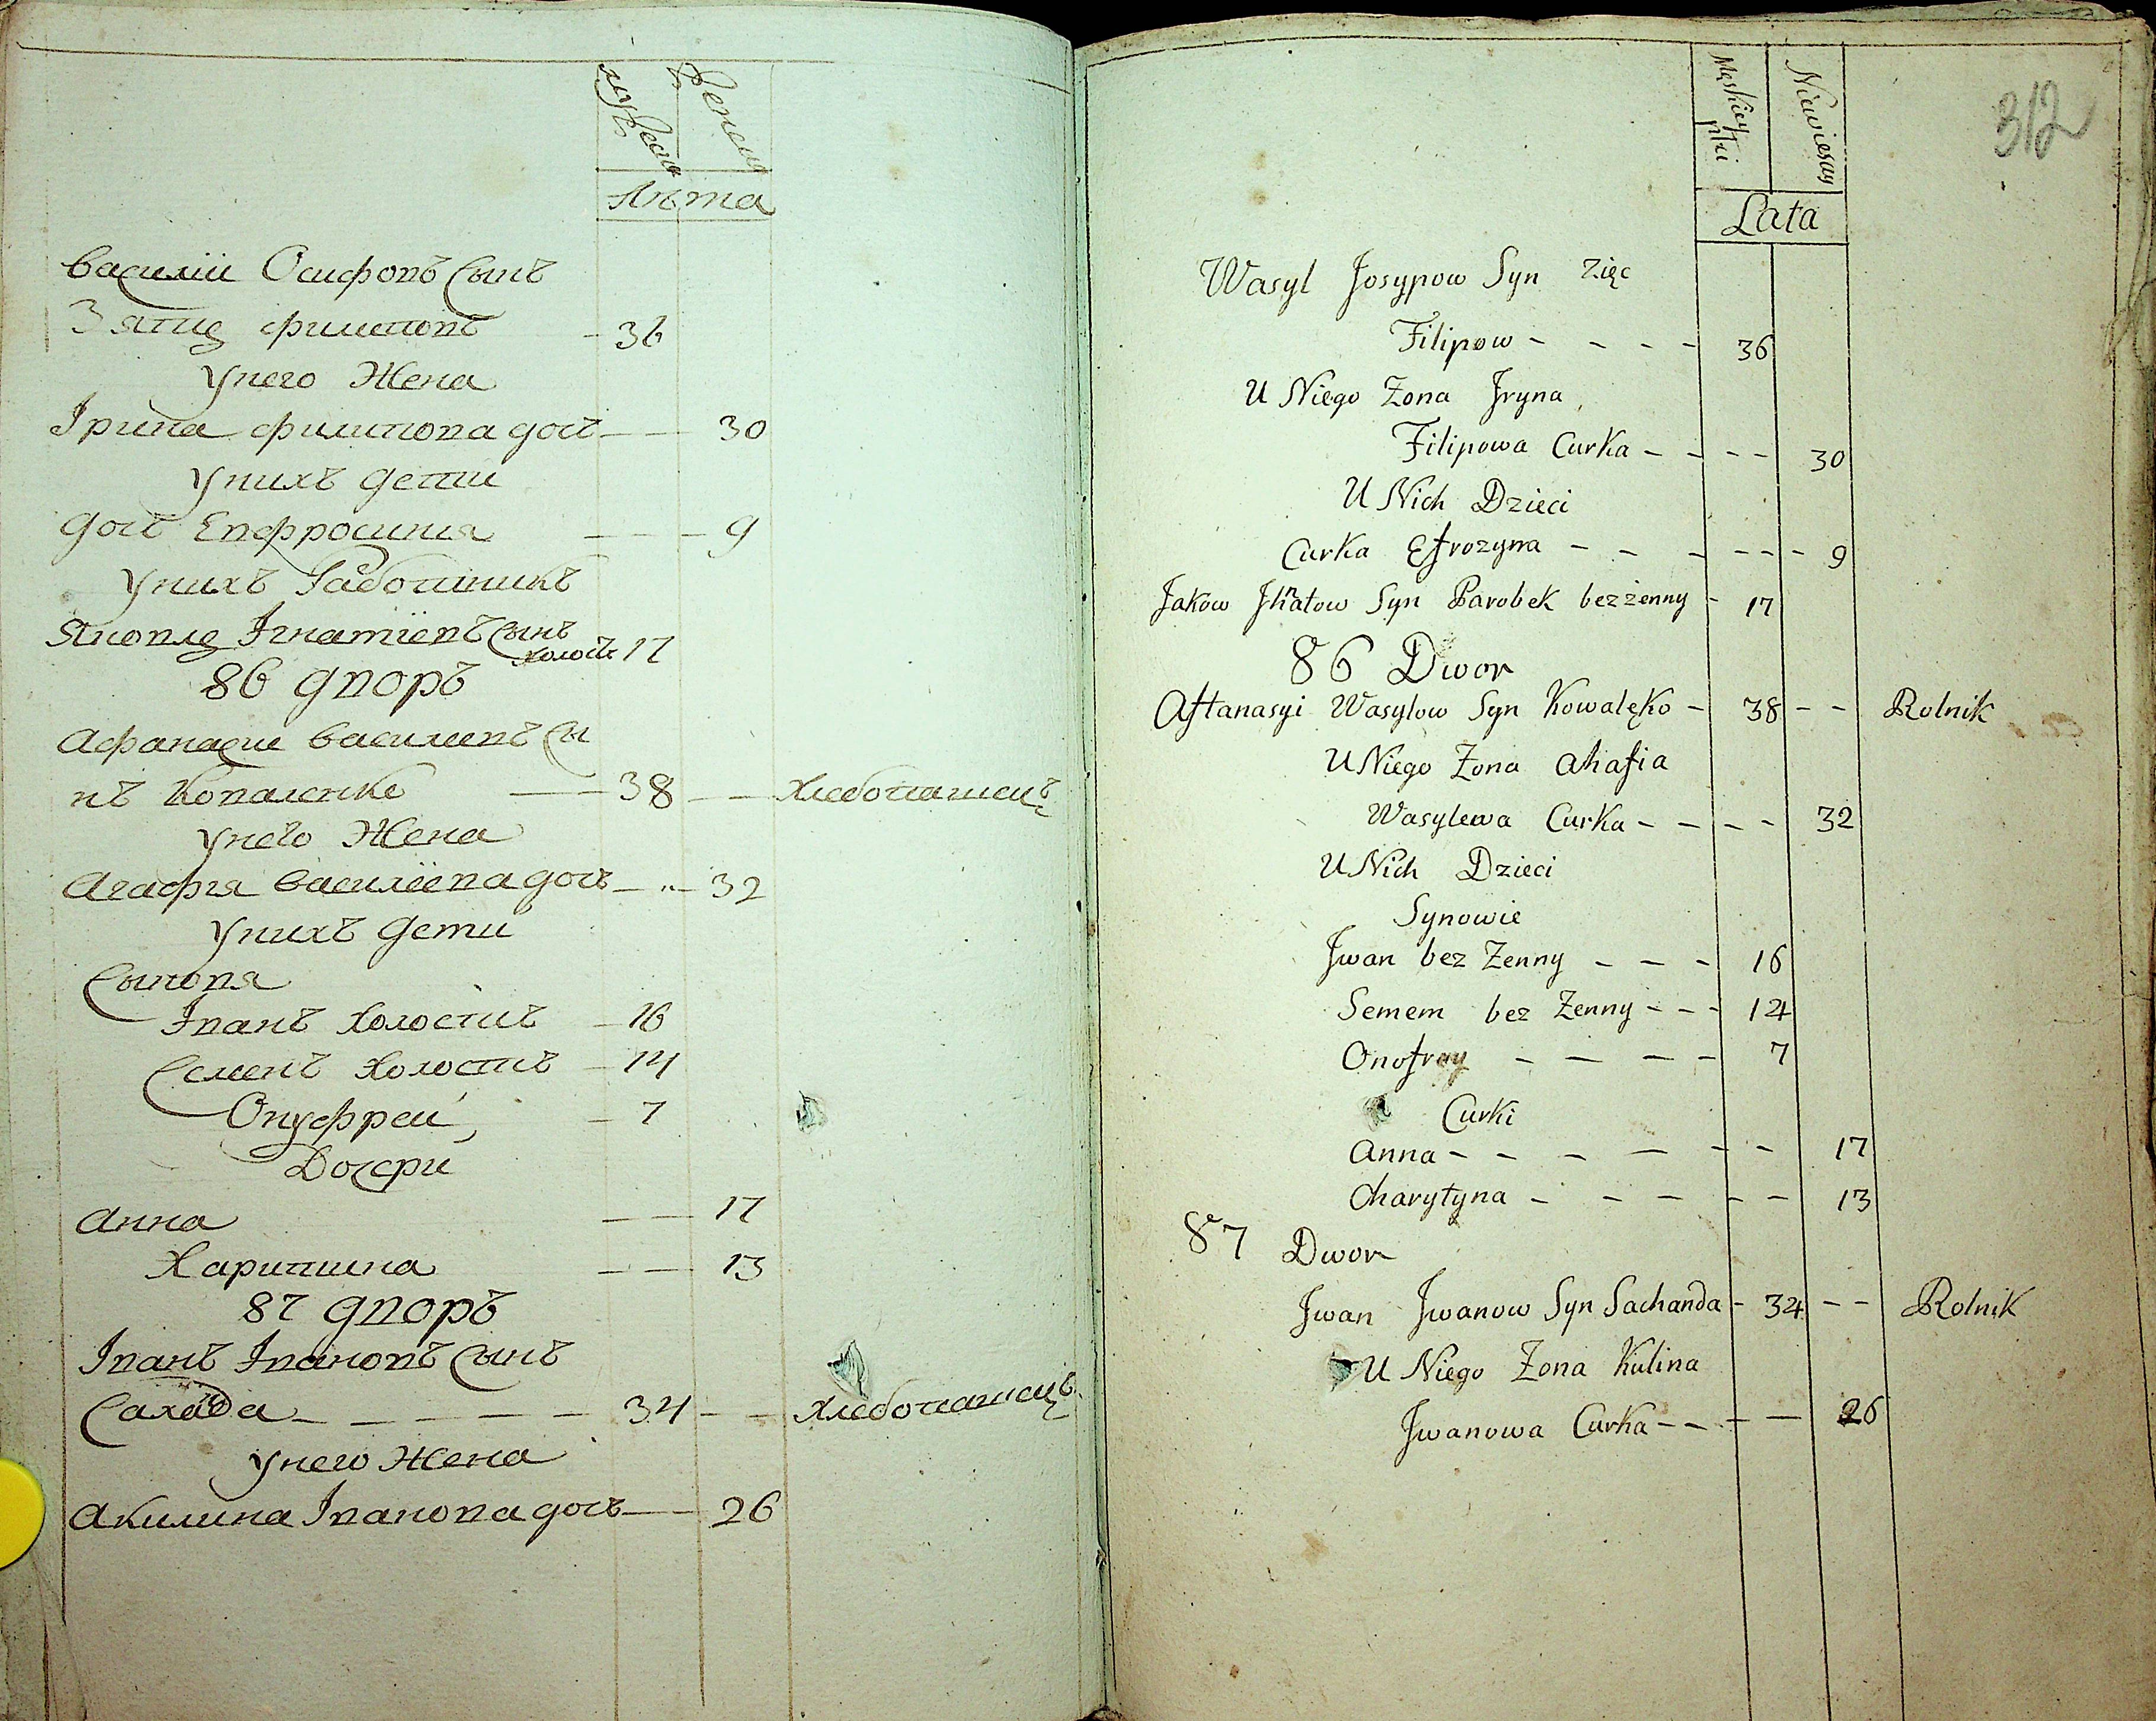 Женска
Лѣта
Василіи Осифовъ Сынъ
Зятъ филиповъ - 36
Унего Жена
Ірина филипова дочъ — — 30
Унихъ дети
дочъ Евфросиния — — — 9
Унихъ Работникъ
Яковлъ Ігнатїевъ Сынъ
холостъ 17
86 дворъ
Афанасие Василиевъ Сы
нъ Коваленко — 38 — — Хлебопашецъ
унего Жена
Агафия Василїева дочъ — — 32
Унихъ дети
Сыновя
Іванъ Холостъ - 16
Семенъ Холостъ - 14
Онуфреи - 7
Дочери
Анна — — 17
Харитина — — 13
87 дворъ
Іванъ Івановъ Сынъ
Саханда — — — — — 34 — — Хлебопашецъ
Унего Жена
Акилина Іванова дочъ — — 26
312
Męskiey płci
Niewiescey
Lata
Wasyl Josypow Syn Zięc
Filipow - - - - 36
U Niego Zona Jryna
Filipowa Curka - - - - 30
U Nich Dzieci
Curka Efrozyna - - - - - - 9
Jakow Jhnatow Syn Parobek bezżenny - 17
86 Dwor
Aftanasyi Wasylow Syn Kowalęko - 38 - - Rolnik
U Niego Zona Ahafia
Wasylewa Curka - - - - 32
U Nich Dzieci
Synowie
Jwan bez Zenny - - - 16
Semem bez Zenny - - - 14
Onofray - - - - 7
Curki
Anna - - - - - - 17
Charytyna - - - - - - 13
87 Dwor
Jwan Jwanow Syn Sachanda - 34 - - Rolnik
U Niego Zona Kulina
Jwanowa Curka - - - - 26